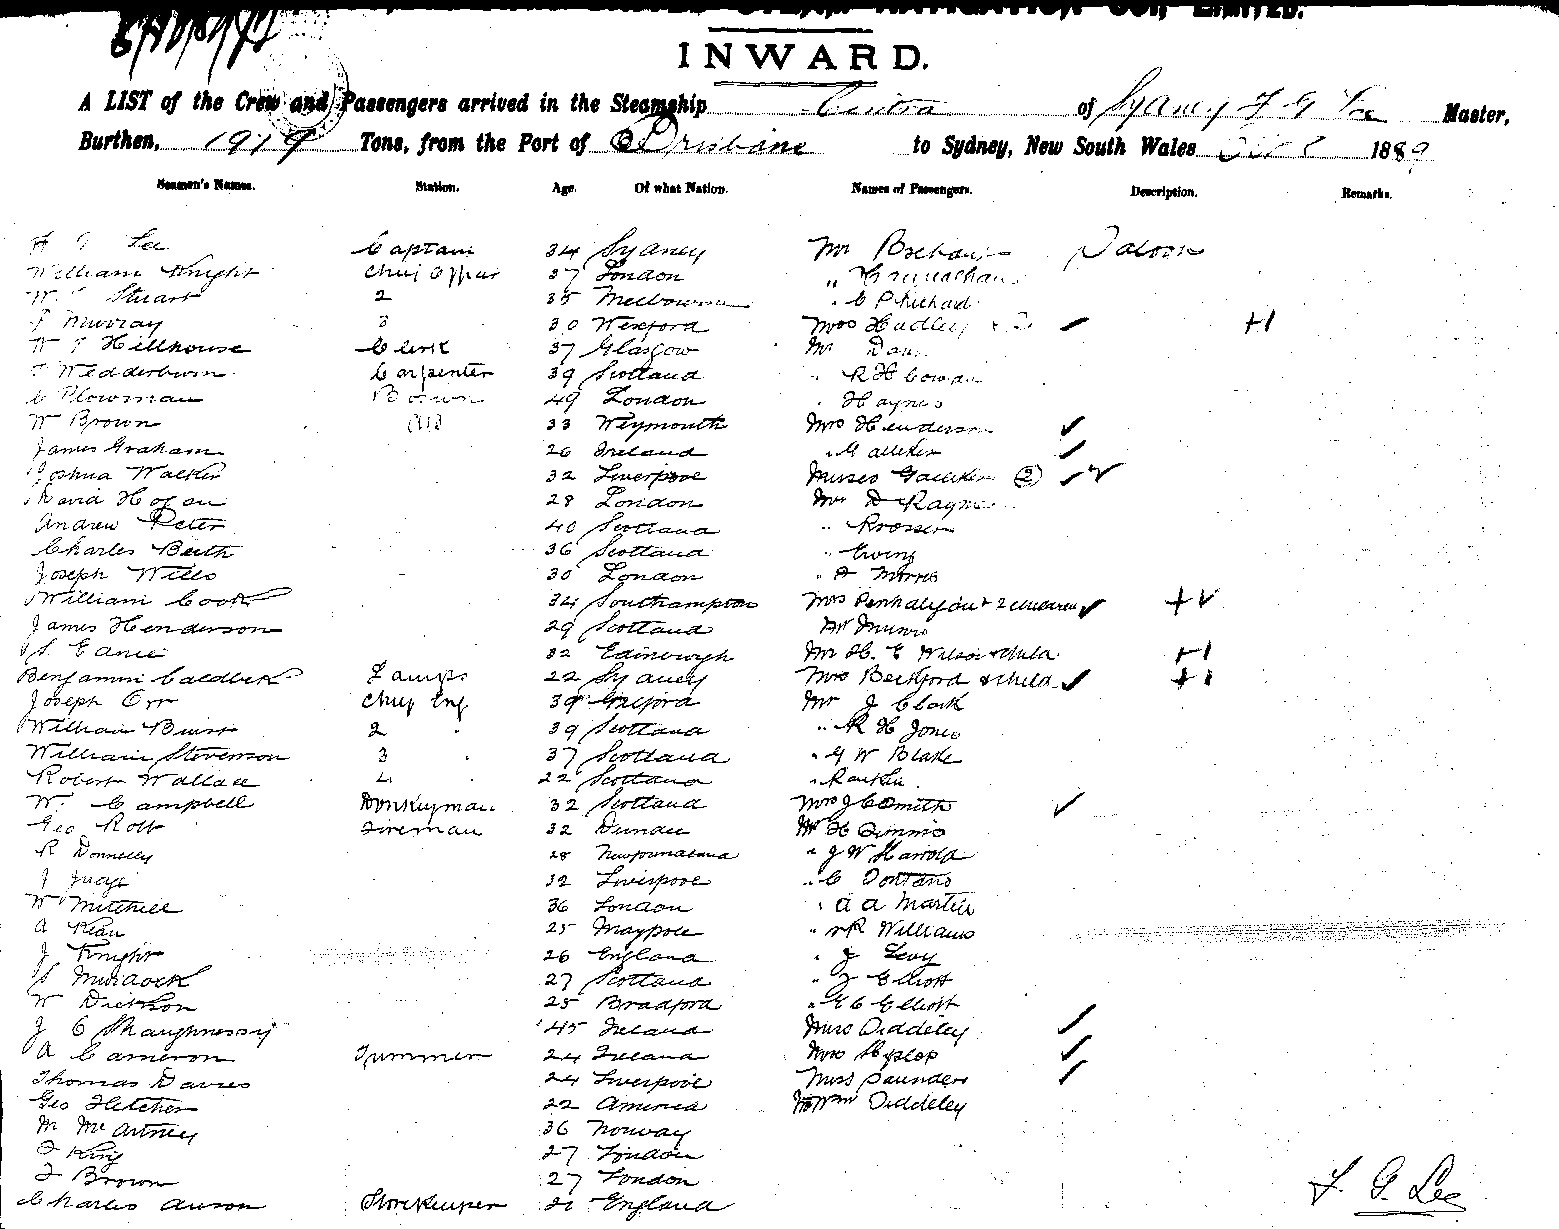 STEAM NAVIGATION COY. LIMITED.
INWARD.
A LIST of the Crew and Passengers arrived in the Steamship Cintra of Sydney F G Lee Master,
Burthen, 1979 Tons, from the Port of Brisbane to Sydney, New South Wales Oct 1889
Seamen's Names. Station. Age. Of what Nation. Names of Passengers. Description. Remarks.
F G Lee Captain 34 Sydney Mr Saloon
William Knight Chief Officer 37 London "
W Stuart 2 35 Melbourne " C Prichard
Murray 3 30 Wexford Mrs Hadley ✓ +1
W Hillhouse Clerk 37 Glasgow Mr
Wedderburn Carpenter 39 Scotland " R H Cowan
C Plowman Bosun 49 London " Haynes
W Brown AB 33 Weymouth Mrs Henderson ✓
James Graham 26 Ireland " Galliker ✓
Joshua Walker 32 Liverpool Misses Galliker (2) ✓✓
David Hogan 28 London Mr D Rayne
Andrew Peter 40 Scotland " Rrosser
Charles Beith 36 Scotland " Ewing
Joseph Wills 30 London " Morris
William Cook 34 Southampton Mrs Penhalyon + 2 children ✓ +✓
James Henderson 29 Scotland Mr Munro
S 32 Edinburgh Mr H. E Wilson & child +1
Benjamin Caldbeck Lamps 22 Sydney Mrs Beckford & child ✓ +1
Joseph Orr Chief Eng 39 Mr J Clark
William Buist 2 " 39 Scotland " R H Jones
William Stevenson 3 37 Scotland " G W Blake
Robert Wallace 4 " 22 Scotland " Rankin
W. Campbell Donkeyman 32 Scotland Mrs J C Smith ✓
Geo Rolt Fireman 32 Dundee Mr H
R Donnelly 28 Newfoundland " J W Harrold
J Judge 32 Liverpool " C
W Mitchell 36 London " A A Martin
A Kean 25 Maypole " R Williams
J Knight 26 England " J Levy
S Murdock 27 Scotland " J Elliott
W Dickson 25 Bradford " E C Elliott
J O Shaughnessy 45 Ireland Miss Diddeley ✓
A Cameron Trimmer 24 Ireland Mrs Hyslop ✓
Thomas Davies 24 Liverpool Miss Saunders ✓
Geo Fletcher 22 America Diddeley
M McArtney 36 Norway
King 27 London
Brown 27 London
Charles Anson Storekeeper 21 England
F. G. Lee